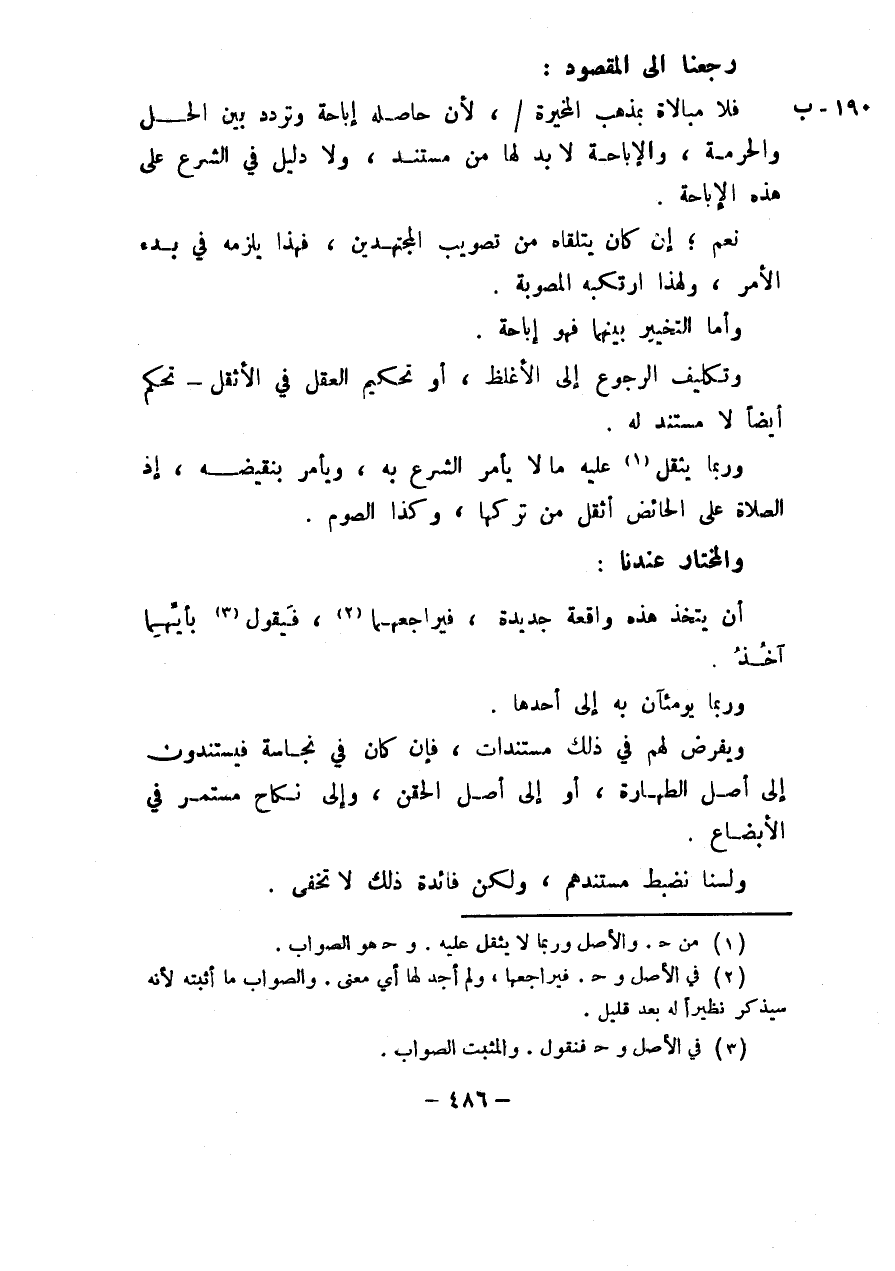 رجعنا الى المقصود :
١٩٠ - ب فلا مبالاة بمذهب المخيرة / ، لأن حاصله إباحة وتردد بين الحل
والحرمة ، والإباحة لا بد لها من مستند ، ولا دليل في الشرع على
هذه الإباحة .
نعم ؛ إن كان يتلقاه من تصويب المجتهدين ، فهذا يلزمه في بدء
الأمر ، ولهذا ارتكبه المصوبة .
وأما التخيير بينهما فهو إباحة .
وتكليف الرجوع إلى الأغلظ ، أو تحكيم العقل في الأثقل – تحكم
أيضاً لا مستند له .
وربما يثقل (١) عليه ما لا يأمر الشرع به ، ويأمر بنقيضه ، إذ
الصلاة على الحائض أثقل من تركها ، وكذا الصوم .
والمختار عندنا :
أن يتخذ هذه واقعة جديدة ، فيراجعهما (٢) ، فَيقول (٣) بأيِّهما
آخُذُ .
وربما يومئآن به إلى أحدها .
ويفرض لهم في ذلك مستندات ، فإن كان في نجاسة فيستندون
إلى أصل الطهارة ، أو إلى أصل الحقن ، وإلى نكاح مستمر في
الأبضاع .
ولسنا نضبط مستندهم ، ولكن فائدة ذلك لا تخفى .
(١) من ح . والأصل وربما لا يثقل عليه . و ح هو الصواب .
(٢) في الأصل و ح . فيراجعها ، ولم أجد لها أي معنى . والصواب ما أثبته لأنه
سيذكر نظيراً له بعد قليل .
(٣) في الأصل و ح فنقول . والمثبت الصواب .
– ٤٨٦ –